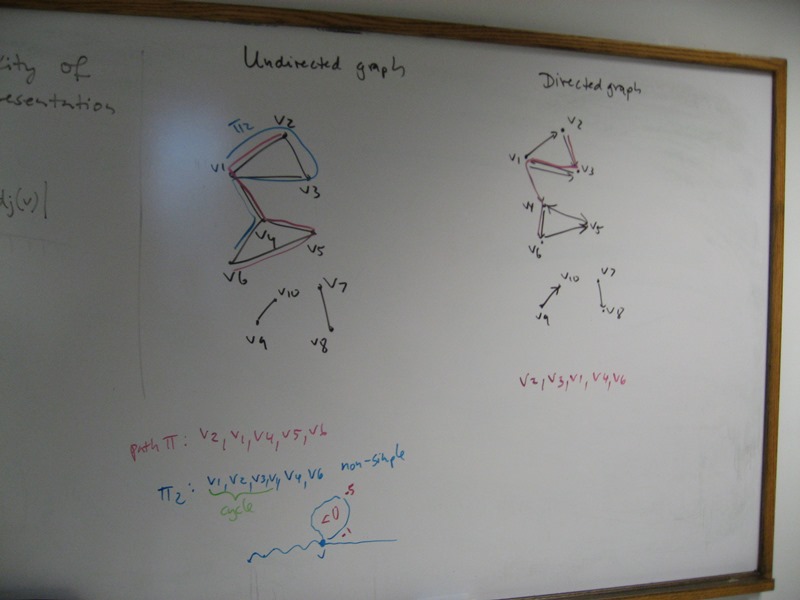 ity of
esentation
dj(v)|
Undirected graph
π2
V2
V1
V3
V4
V5
V6
V10
V7
V9
V8
path π: V2, V1, V4, V5, V6
π2: V1, V2, V3, V1, V4, V6 non-simple
cycle
<0
v
Directed graph
V2
V1
V3
V4
V5
V6
V10
V7
V9
V8
V2, V3, V1, V4, V6